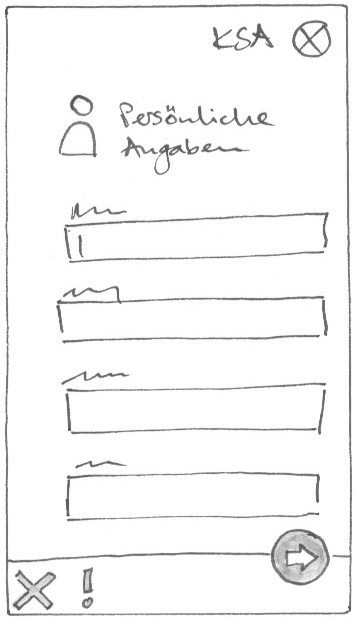 KSA
Persönliche
Angaben
!